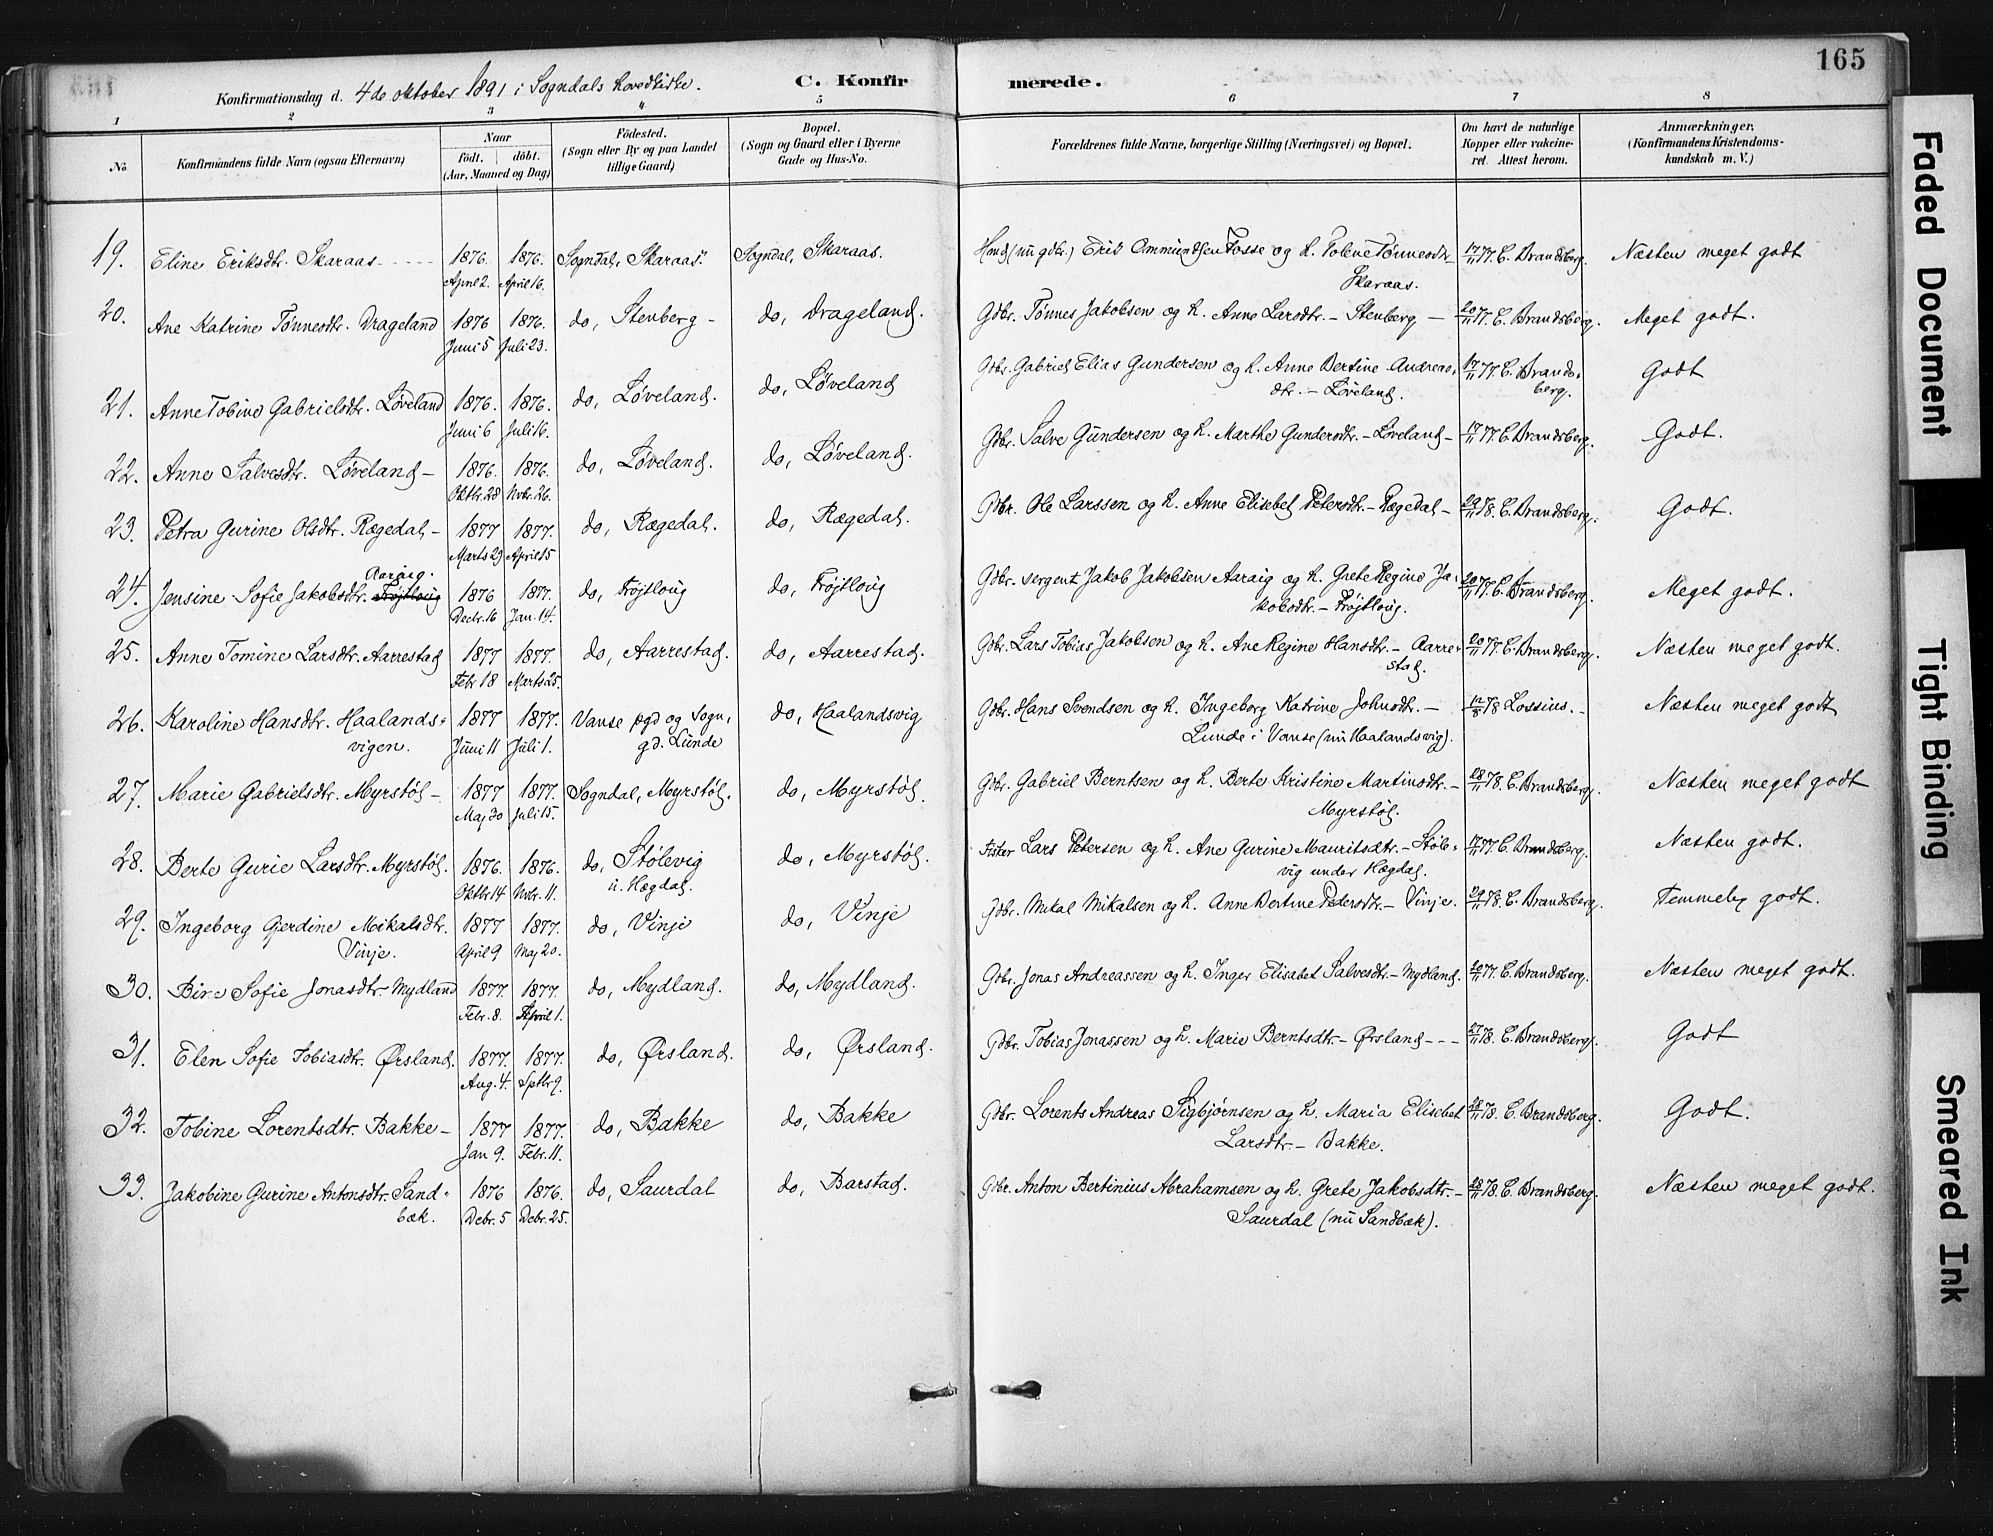 165
Konfirmationsdag d. 4de oktober 1891 i Sogndals hovedkirke. C. Konfirmerede.
1 2 3 4 5 6 7 8
No Konfirmandens fulde Navn (ogsaa Efternavn) Naar födt. döbt. (Aar, Maaned og Dag) Födested. (Sogn eller By og paa Landet tillige Gaard) Bopæl. (Sogn og Gaard eller i Byerne Gade og Hus-No. Forældrenes fulde Navne, borgerlige Stilling (Næringsvei) og Bopæl. Om havt de naturlige Kopper eller vakcineret. Attest herom. Anmærkninger. (Konfirmandens Kristendomskundskab m. V.)
19. Eline Eriksdtr. Skaraas 1876. April 2. 1876. April 16. Sogndal, Skaraas. Sogndal, Skaraas. Hmd (nu gdbr.) Erik Ommundsen Fosse og h. Tolene Tønnesdtr. Skaraas. 17/11 77. E. Brandsberg. Næsten meget godt
20. Ane Katrine Tønnesdtr. Drageland 1876 Juni 5 1876. Juli 23. do, Stenberg - do, Drageland. Gdbr. Tønnes Jakobsen og h. Anne Larsdtr. - Stenberg - 20/11 77. E. Brandsberg. Meget godt.
21. Anne Tobine Gabrielsdtr. Løveland 1876. Juni 6 1876. Juli 16. do, Løveland. do, Løveland Gdbr. Gabriel Elias Gundersen og h. Anne Bertine Andreasdtr. - Løveland. 17/11 77. E. Brandsberg. Godt
22. Anne Salvesdtr. Løveland - 1876. Oktbr. 28 1876. Nvbr. 26. do, Løveland. do, Løveland. Gdbr. Salve Gundersen og h. Marthe Gundersdtr. - Løveland - 17/11 77. E. Brandsberg. Godt.
23. Petra Gurine Olsdtr. Rægedal - 1877 Marts 29 1877. April 15 do, Rægedal. do, Rægedal. Gdbr. Ole Larssen og h. Anne Elisebet Petersdtr. - Rægedal - 29/11 78. E. Brandsberg. Godt.
24. Jensine Sofie Jakobsdtr. Aaraig. Frøjtlovig 1876 Decbr. 16 1877. Jan. 14. do, Frøjtlovig do, Frøjtlovig Gdbr. sergent Jakob Jakobsen Aaraig og h. Grete Regine Jakobsdtr. - Frøjtlovig. 20/11 77. E. Brandsberg. Meget godt.
25. Anne Tomine Larsdtr. Aarrestad 1877 Febr 18 1877. Marts 25. do, Aarrestad. do, Aarrestad. Gdbr. Lars Tobias Jakobsen og h. Ane Regine Hansdtr. - Aarrestad. 20/11 77. E. Brandsberg. Næsten meget godt.
26. Karoline Hansdtr. Haalandsvigen. 1877 Juni 11 1877. Juli 1. Vanse pgd og sogn, gd. Lunde do, Haalandsvig Gdbr. Hans Svendsen og h. Ingeborg Katrine Johnsdtr. - Lunde i Vanse (nu Haalandsvig). 12/8 78 Lossius. - Næsten meget godt
27. Marie Gabrielsdtr. Myrstøl - 1877 Maj 30 1877. Juli 15. Sogndal, Myrstøl. do, Myrstøl. Gdbr. Gabriel Berntsen og h. Berte Kristine Martinsdtr. - Myrstøl. 28/11 78. E. Brandsberg. Næsten meget godt
28. Berte Gurie Larsdtr. Myrstøl. 1876. Oktbr 14 1876. Nvbr. 11. do, Stølevig u. Hægdal. do, Myrstøl. Fisker Lars Petersen og h. Ane Gurine Mauritsdtr. - Stølevig under Hægdal. 17/11 77. E. Brandsberg. Næsten godt.
29. Ingeborg Gjerdine Mikalsdtr. Vinje. 1877 April 9 1877. Maj 20. do, Vinje do, Vinje Gdbr. Mikal Mikalsen og h. Anne Bertine Petersdtr. - Vinje. 29/11 78. E. Brandsberg. Temmelig godt.
30. Bire Sofie Jonasdtr. Mydland 1877. Febr. 8. 1877. April 1. do, Mydland. do, Mydland. Gdbr. Jonas Andreassen og h. Inger Elisabet Salvesdtr. - Mydland. 20/11 77. E. Brandsberg. Næsten meget godt.
31. Elen Sofie Tobiasdtr. Ørsland. 1877. Aug. 4. 1877. Sptbr 9. do, Ørsland. do, Ørsland. Gdbr. Tobias Jonassen og h. Marie Berntsdtr. - Ørsland - - - 27/11 78. E. Brandsberg. Godt
32. Tobine Lorentsdtr. Bakke - 1877 Jan 9. 1877. Febr. 11. do, Bakke do, Bakke Gdbr. Lorents Andreas Sigbjørnsen og h. Maria Elisebet Larsdtr. - Bakke. 28/11 78. E. Brandsberg. Godt.
33. Jakobine Gurine Antonsdtr. Sandbæk. 1876 Decbr. 5 1876. Debr. 25. do, Saurdal do, Barstad. Gdbr. Anton Bertinius Abrahamsen og h. Grete Jakobsdtr. - Saurdal (nu Sandbæk). 28/11 78. E. Brandsberg. Næsten meget godt.
Faded Document
Tight Binding
Smeared Ink